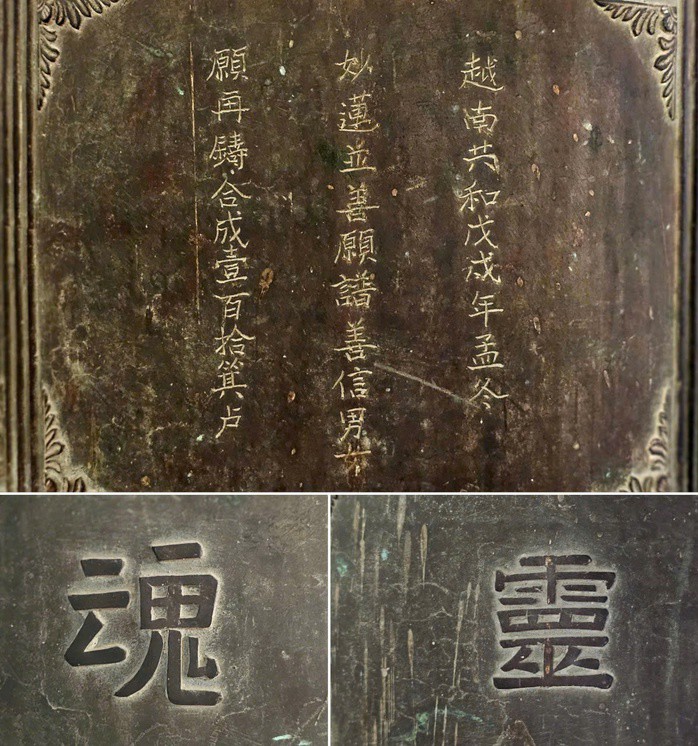 越南共和戊戌年孟冬
妙蓮並善願諸善信男女
願再鑄合成壹百拾箕卢
魂
靈